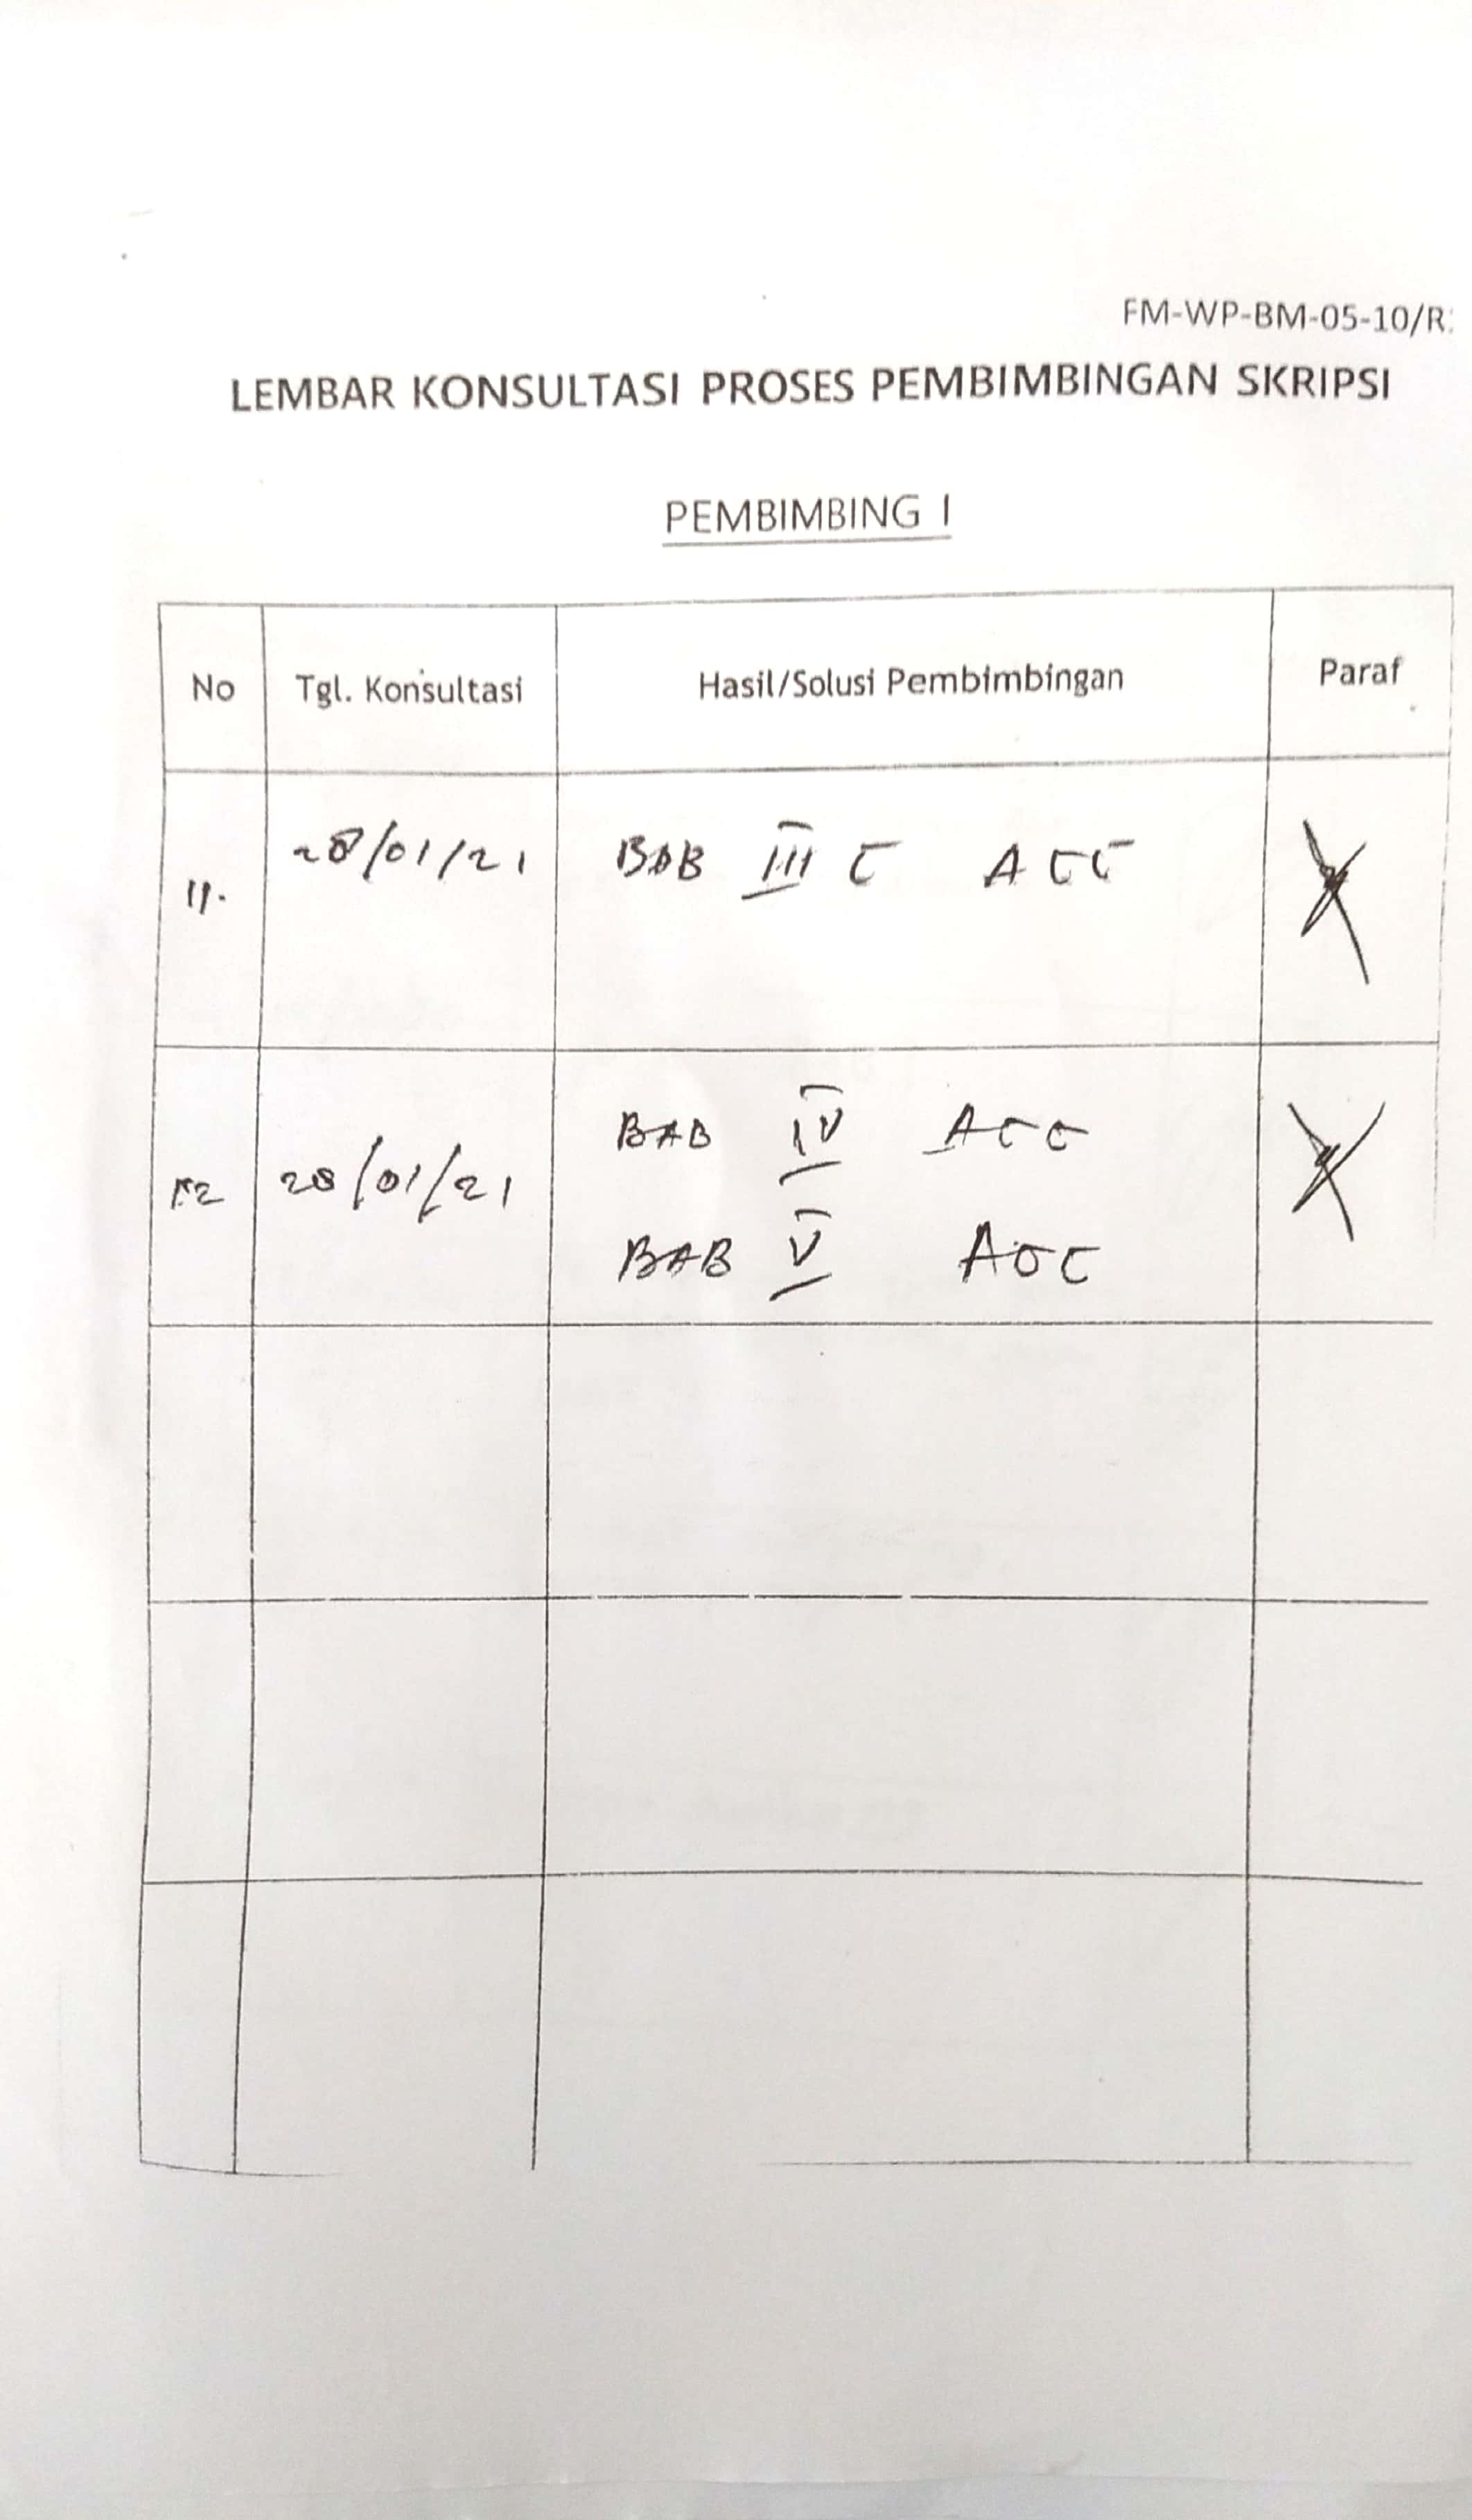 FM-WP-BM-05-10/R
LEMBAR KONSULTASI PROSES PEMBIMBINGAN SKRIPSI
PEMBIMBING I
No Tgl. Konsultasi Hasil/Solusi Pembimbingan Paraf
11. 28/01/21 BAB III C ACC
12 28/01/21 BAB IV ACC
BAB V ACC